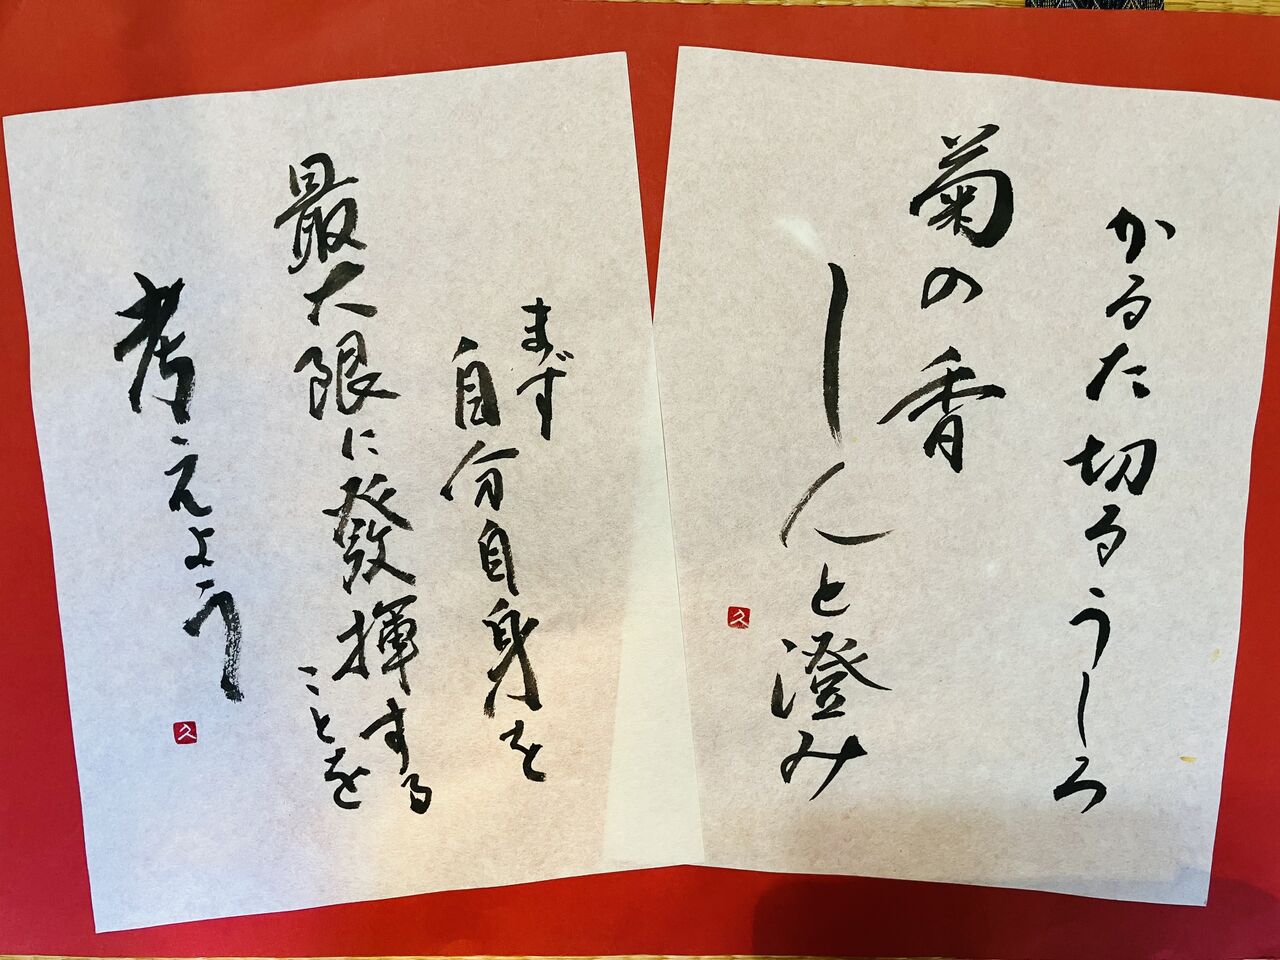 かるた切るうしろ
菊の香
しんと澄み
久
まず
自分自身を
最大限に發揮する
ことを
考えよう
久